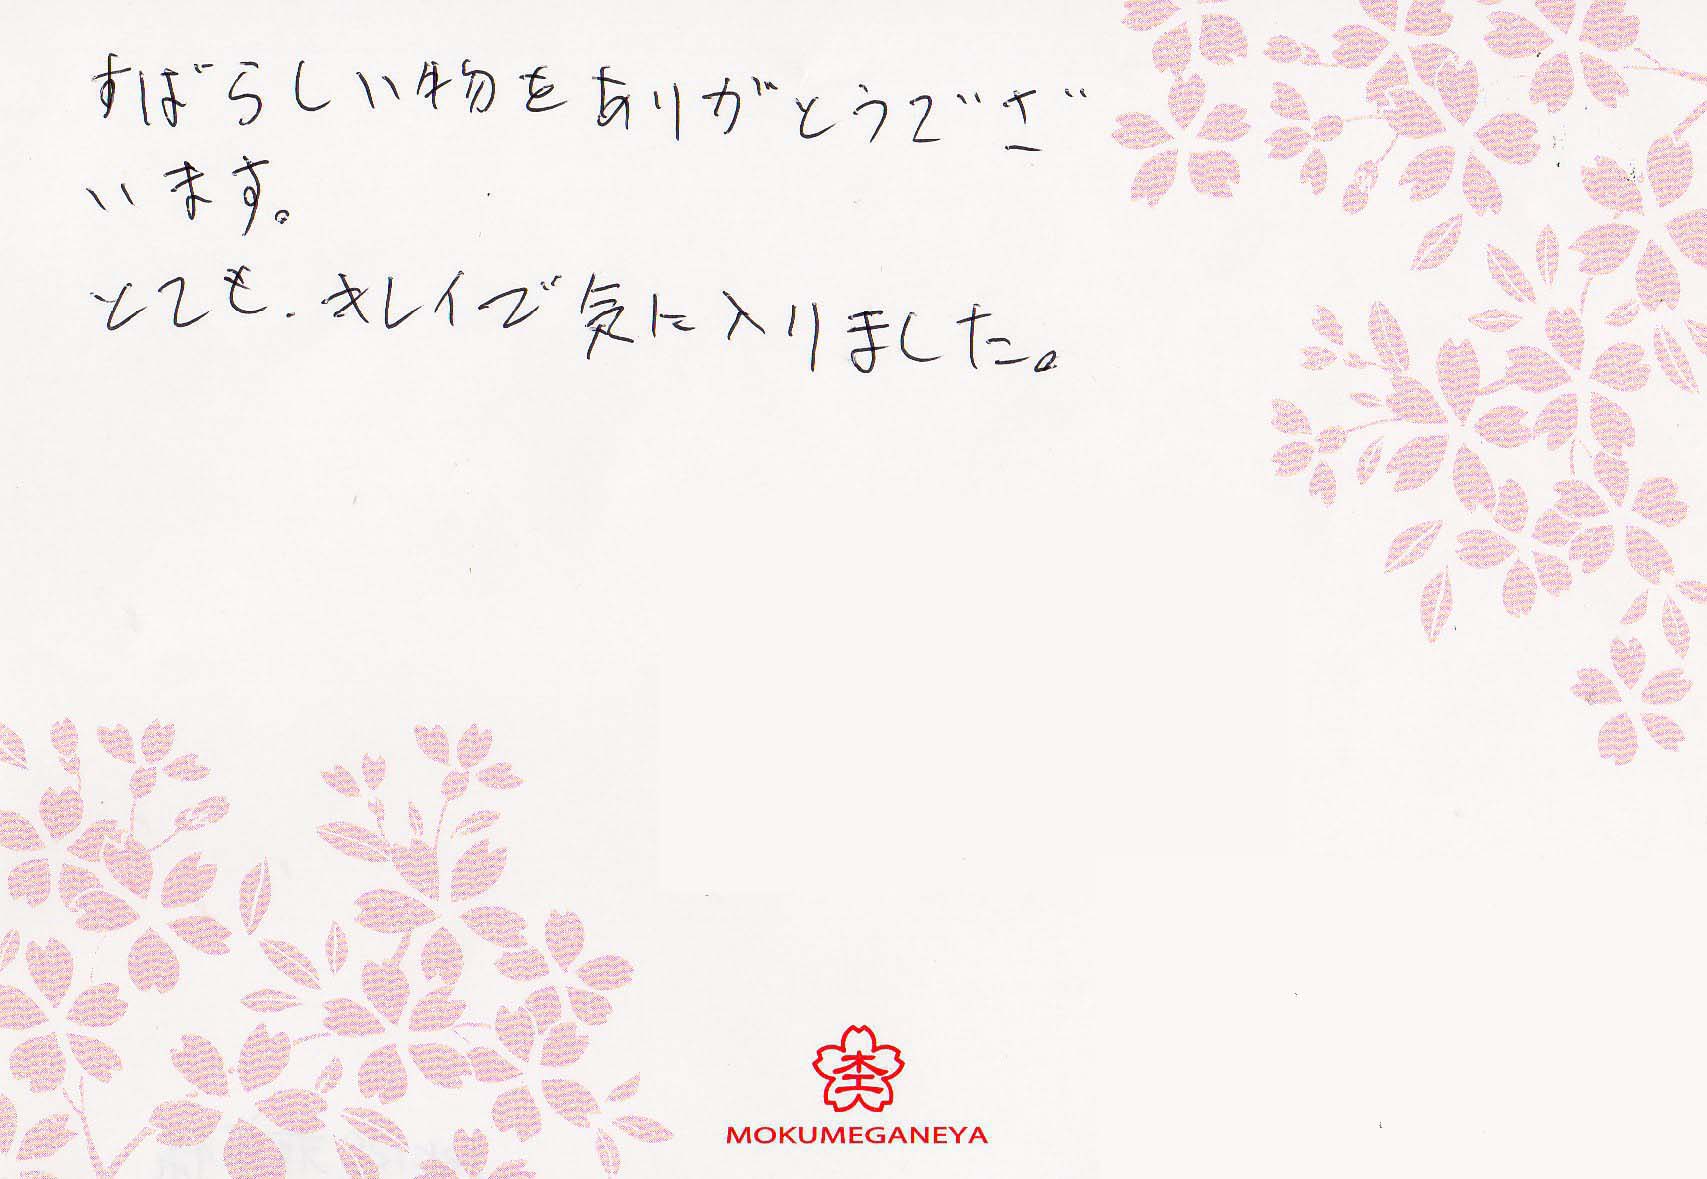 すばらしい物をありがとうござ
います。
とても、キレイで気に入りました。
MOKUMEGANEYA